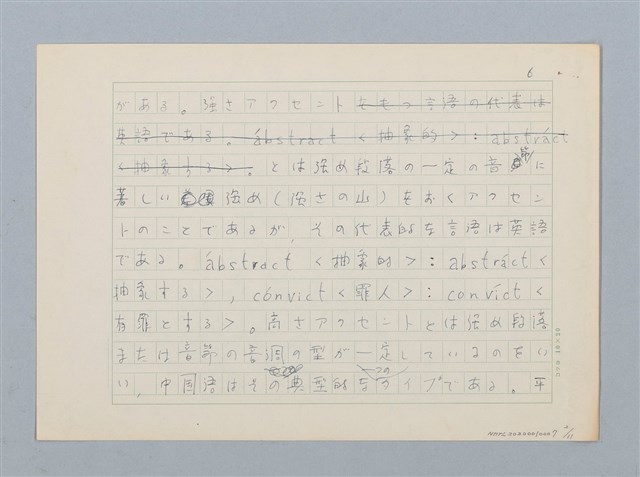 6
がある。強さアクセントをもつ言語の代表は
英語である。ábstract <抽象的>: abstráct
<抽象する>。とは強め段落の一定の音節に
著しい強め(強さの山)をおくアクセン
トのことであるが、その代表的な言語は英語
である。ábstract <抽象的>: abstráct <
抽象する>, cónvict <罪人>: convíct <
有罪とする>。高さアクセントとは強め段落
または音節の音調の型が一定しているのをい
い、中国語はその典型的なタイプである。平
20×10